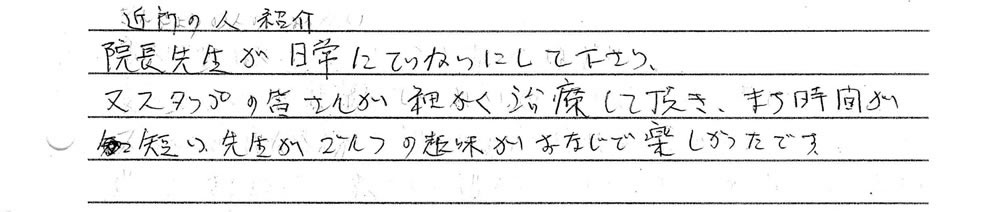 近所の人 紹介
院長先生が日常にていねいにして下さり、
又スタッフの皆さんが細かく治療して頂き、まち時間が
短い、先生がゴルフの趣味がおなじで楽しかったです